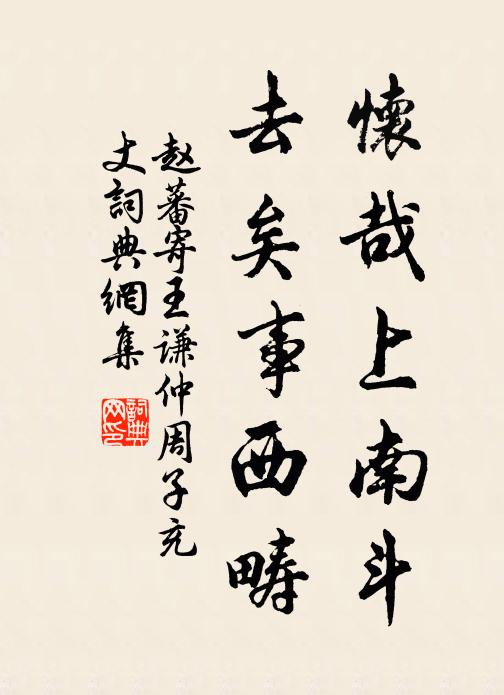 懷哉上南斗
去矣事西疇
赵蕃寄王谦仲周子充
丈詞典網集
詞典网印